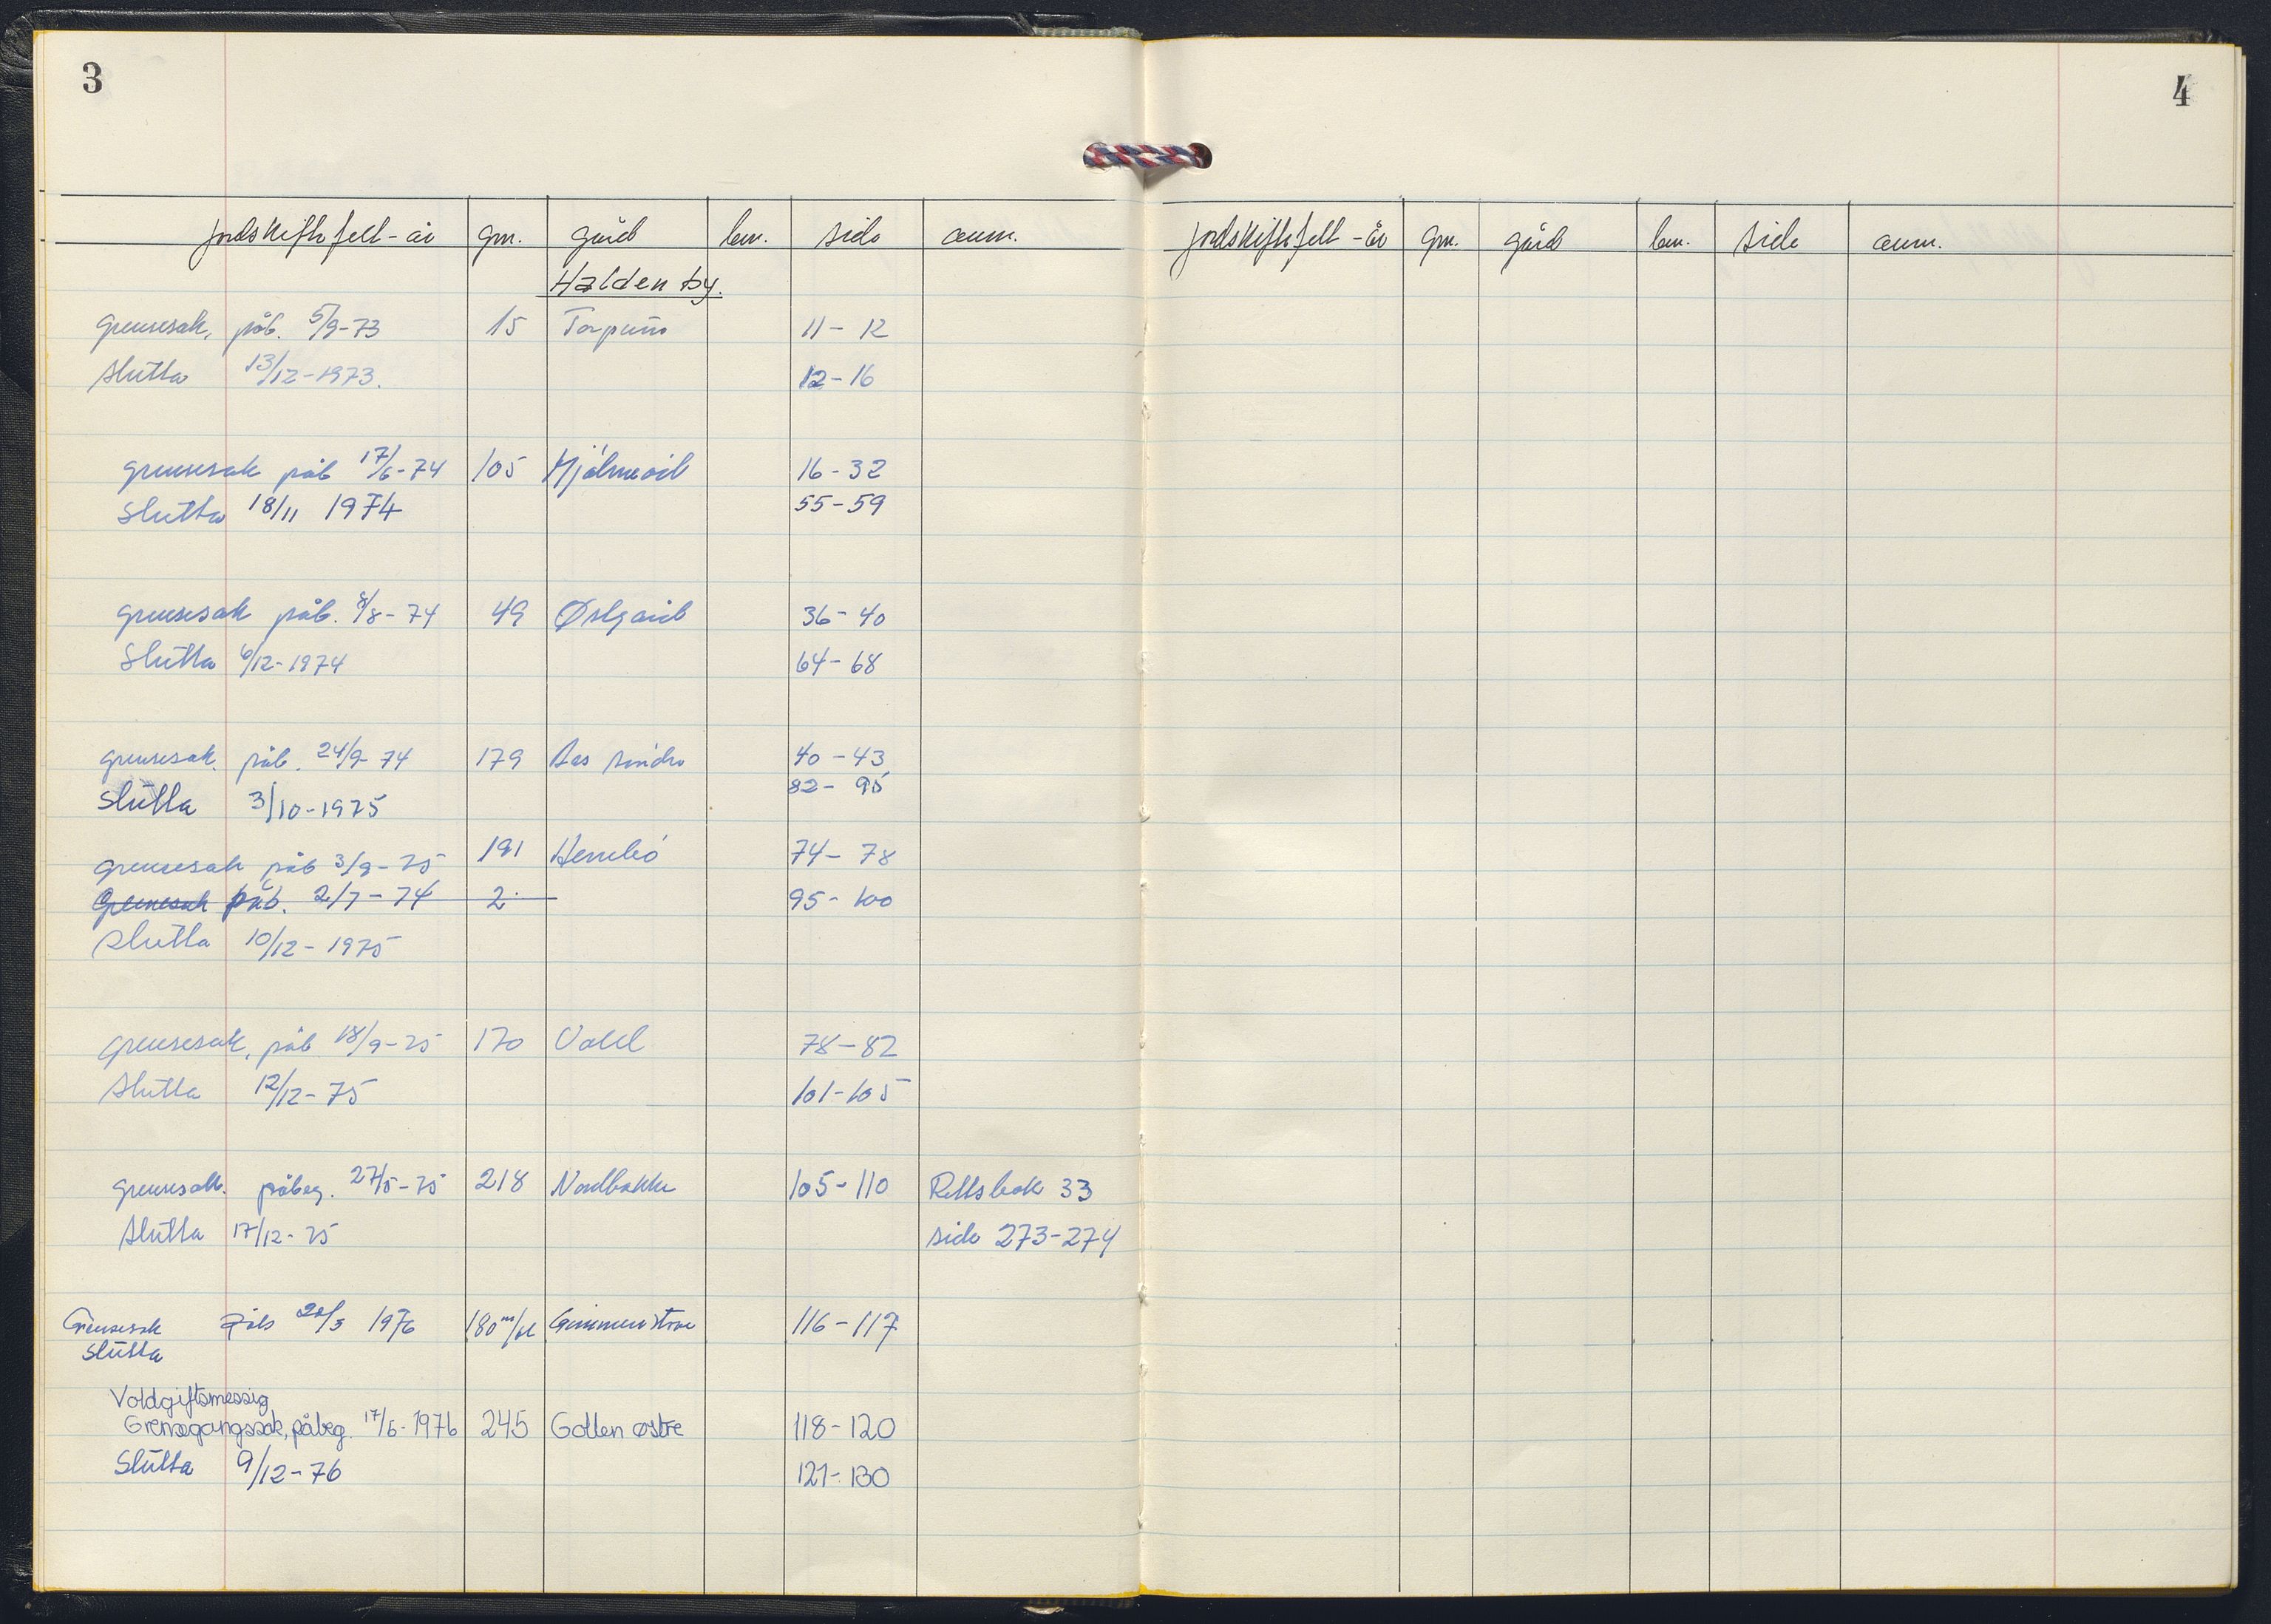 3
jordskifte felt - år gnr. gård bnr. side anm.
Halden by.
Grensesak, påb. 5/9-73 15 Torpum 11 - 12
slutta 13/12-1973. 12-16
grensesak påb 17/6-74 105 16-32
slutta 18/11 1974 55-59
grensesak påb. 8/8-74 49 Østgård 36-40
Slutta 6/12-1974 64-68
grensesak. påb. 24/9-74 179 Aas søndre 40-43
slutta 3/10-1975 82-95
grensesak påb 3/9-75 191 74-78
Grensesak påb. 2/7-74 2 95-100
slutta 10/12-1975
grensesak, påb 18/9-75 170 Vold 78-82
slutta 12/12-75 101-105
grensesak. påbeg. 27/5-75 218 Nordbakke 105-110 Rettsbok 33
slutta 17/12-75 side 273-274
Grensesak påb 1976 180 116-117
slutta
Voldgiftsmessig
Grensegangssak, påbeg. 17/6-1976 245 Gollen østre 118-120
Slutta 9/12-76 121-130
4
jordskifte felt - år gnr. gård bnr. side anm.